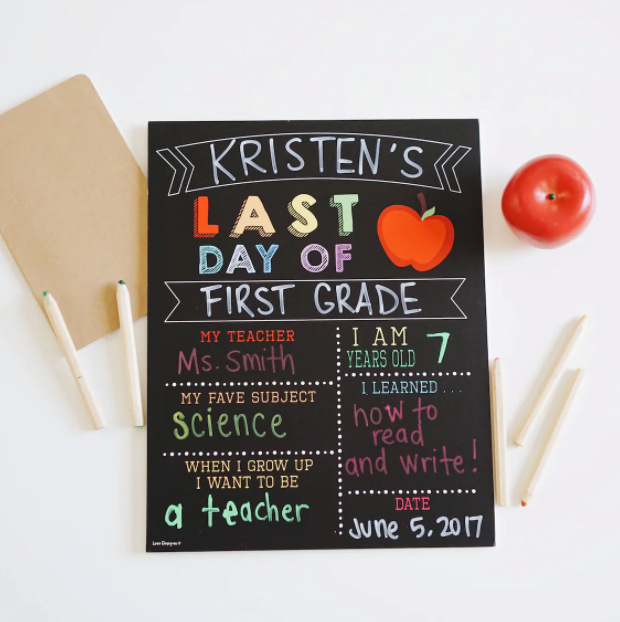 KRISTEN'S
LAST
DAY OF
FIRST GRADE
MY TEACHER
Ms. Smith
MY FAVE SUBJECT
science
WHEN I GROW UP
I WANT TO BE
a teacher
I AM
YEARS OLD 7
I LEARNED . . .
how to
read
and write!
DATE
June 5, 2017